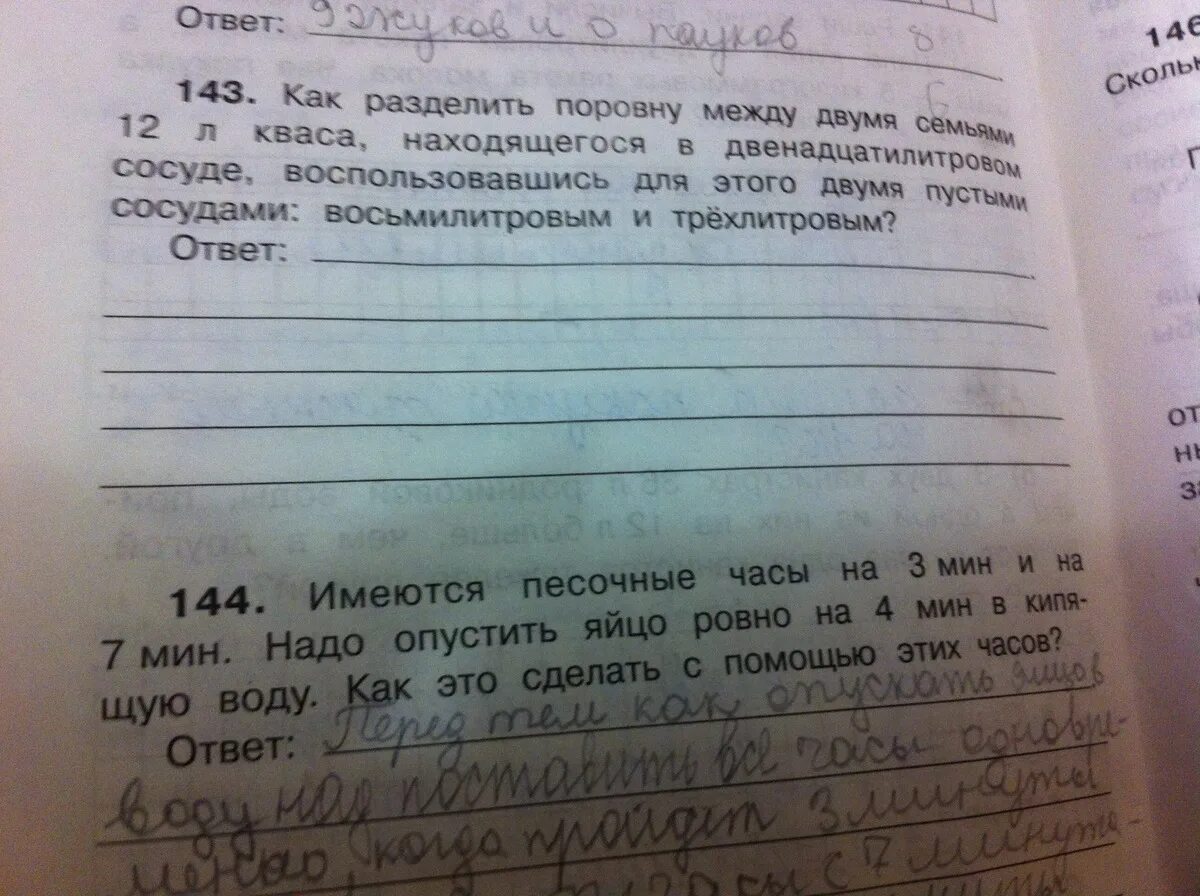 Ответ: 9 жуков и 6 пауков 8
146
Сколь
143. Как разделить поровну между двумя семьями
12 л кваса, находящегося в двенадцатилитровом
сосуде, воспользовавшись для этого двумя пустыми
сосудами: восьмилитровым и трёхлитровым?
Ответ:
144. Имеются песочные часы на 3 мин и на
7 мин. Надо опустить яйцо ровно на 4 мин в кипя-
щую воду. Как это сделать с помощью этих часов?
Ответ: Перед тем как опускать яйцо в
воду над поставить все часы одновре-
менно, когда пройдет 3 минуты
часы с 7 минута-